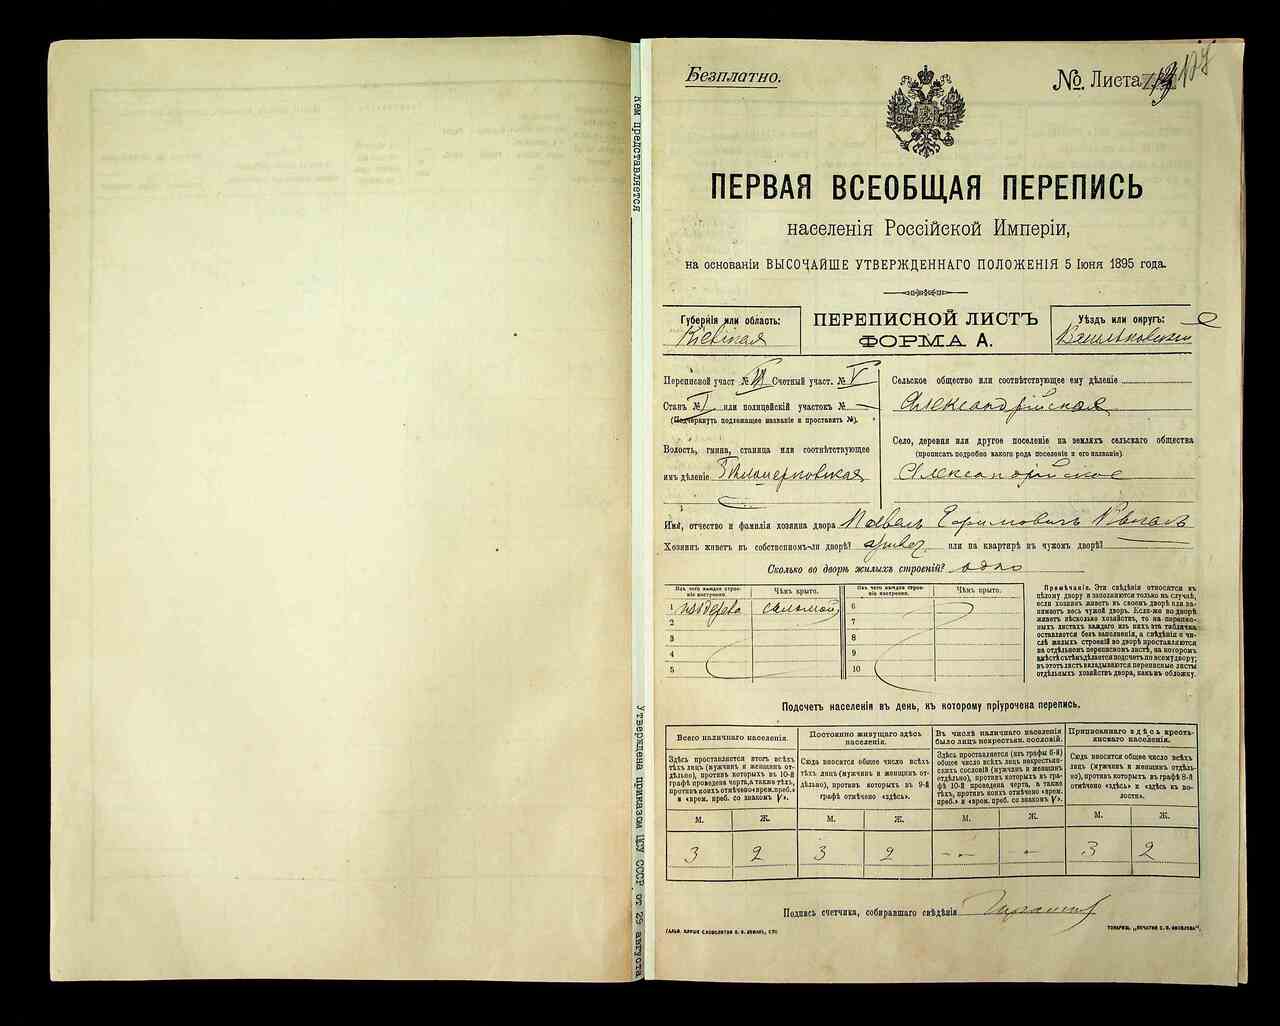 кем представляется
Утверждена приказом ЦСУ СССР от 25 августа
Безплатно.
№. Листа
ПЕРВАЯ ВСЕОБЩАЯ ПЕРЕПИСЬ
населенія Россійской Имперіи,
на основаніи ВЫСОЧАЙШЕ УТВЕРЖДЕННАГО ПОЛОЖЕНІЯ 5 Іюня 1895 года.
Губернія или область:
Кіевская
ПЕРЕПИСНОЙ ЛИСТЪ
ФОРМА А.
Уѣздъ или округъ:
Васильковскій
Переписной участ № VI Счетный участ. № V
Станъ № I или полицейскій участокъ №
(Подчеркнуть подлежащее названіе и проставить №).
Волость, гмина, станица или соотвѣтствующее
имъ дѣленіе Бѣлоцерковская
Сельское общество или соотвѣтствующее ему дѣленіе
Александрійское
Село, деревня или другое поселеніе на земляхъ сельскаго общества
(прописать подробно какого рода поселеніе и его названіе).
Александрійское
Имя, отчество и фамилія хозяина двора Павелъ Ефимовичъ
Хозяинъ живетъ въ собственномъ-ли дворѣ? или на квартирѣ въ чужомъ дворѣ?
Сколько во дворѣ жилыхъ строеній? одно
Изъ чего каждое строеніе построено. Чѣмъ крыто. Изъ чего каждое строеніе построено. Чѣмъ крыто.
1 изъ дерева соломой 6
2 7
3 8
4 9
5 10
Примѣчаніе. Эти свѣдѣнія относятся къ
цѣлому двору и заполняются только въ случаѣ,
если хозяинъ живетъ въ своемъ дворѣ или занимаетъ
весь чужой дворъ. Если-же во дворѣ
живетъ нѣсколько хозяйствъ, то на переписныхъ
листахъ каждаго изъ нихъ эта табличка
оставляется безъ заполненія, а свѣдѣнія о числѣ
жилыхъ строеній во дворѣ проставляются
на отдѣльномъ переписномъ листѣ, на которомъ
вмѣстѣ съ тѣмъ дѣлается подсчетъ по всему двору;
въ этотъ листъ вкладываются переписные листы
отдѣльныхъ хозяйствъ двора, какъ въ обложку.
Подсчетъ населенія въ день, къ которому пріурочена перепись.
Всего наличнаго населенія.
Здѣсь проставляется итогъ всѣхъ
тѣхъ лицъ (мужчинъ и женщинъ отдѣльно),
противъ которыхъ въ 10-й
графѣ проведена черта, а также тѣхъ,
противъ коихъ отмѣчено «врем. преб.»
и «врем. преб. со знакомъ V».
Постоянно живущаго здѣсь
населенія.
Сюда вносится общее число всѣхъ
тѣхъ лицъ (мужчинъ и женщинъ отдѣльно),
противъ которыхъ въ 9-й
графѣ отмѣчено «здѣсь».
Въ числѣ наличнаго населенія
было лицъ некрестьян. сословій.
Здѣсь проставляется (изъ графы 6-й)
общее число всѣхъ лицъ некрестьянскихъ
сословій (мужчинъ и женщинъ
отдѣльно), противъ которыхъ въ графѣ
10-й проведена черта, а также
тѣхъ, противъ коихъ отмѣчено «врем.
преб.» и «врем. преб. со знакомъ V».
Приписаннаго здѣсь крестьянскаго
населенія.
Сюда вносится общее число всѣхъ
лицъ (мужчинъ и женщинъ отдѣльно),
противъ которыхъ въ графѣ 8-й
отмѣчено «здѣсь» и «здѣсь къ волости».
М. Ж. М. Ж. М. Ж. М. Ж.
3 2 3 2 - - 3 2
Подпись счетчика, собиравшаго свѣдѣнія
ТОВАРИЩ. „ПЕЧАТНЯ С. П. ЯКОВЛЕВА".